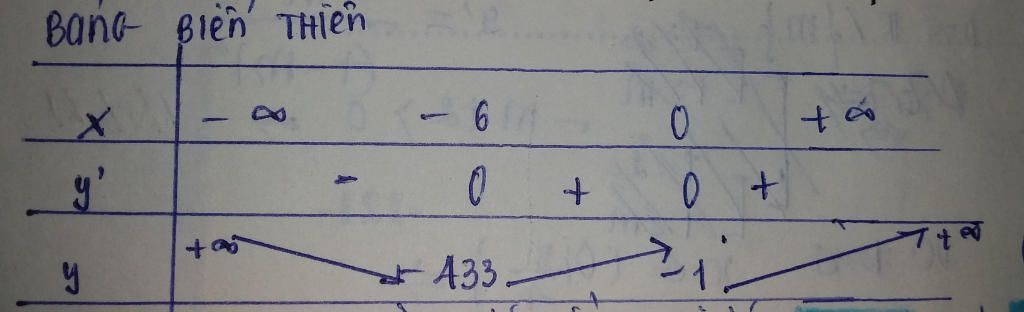 BảNG BIếN THIêN
x - ∞ - 6 0 + ∞
y' - 0 + 0 +
+∞ + ∞
y - 433 - 1